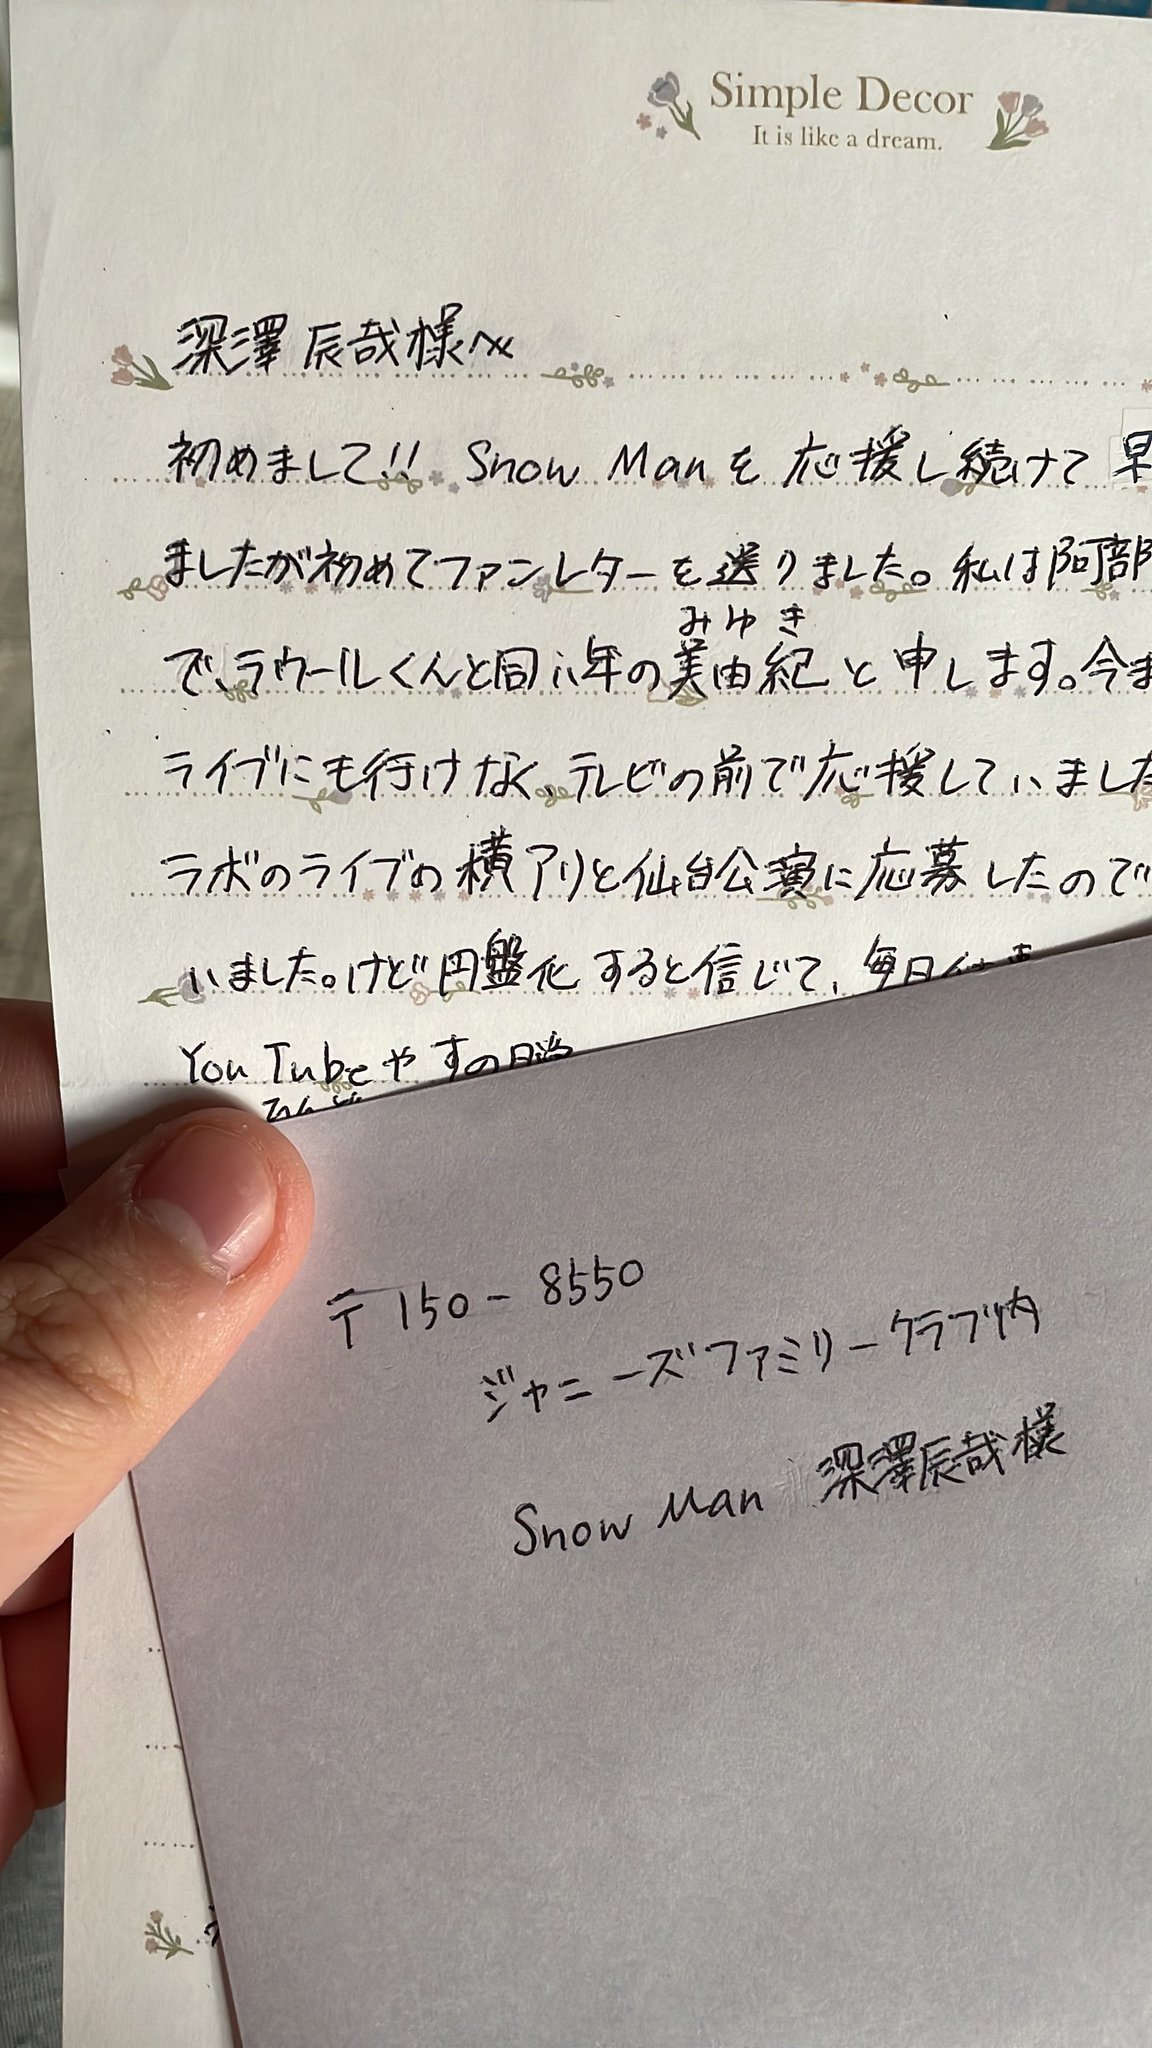 Simple Decor
It is like a dream.
深澤辰哉様へ
初めまして!! Snow Manを応援し続けて早
ましたが初めてファンレターを送りました。私は阿部
みゆき
で、ラウールくんと同い年の美由紀と申します。今ま
ライブにも行けなく、テレビの前で応援していました
ラボのライブの横アリと仙台公演に応募したので
いました。けど円盤化すると信じて、毎日
YouTubeやすの
〒150-8550
ジャニーズファミリークラブ内
Snow Man 深澤辰哉様